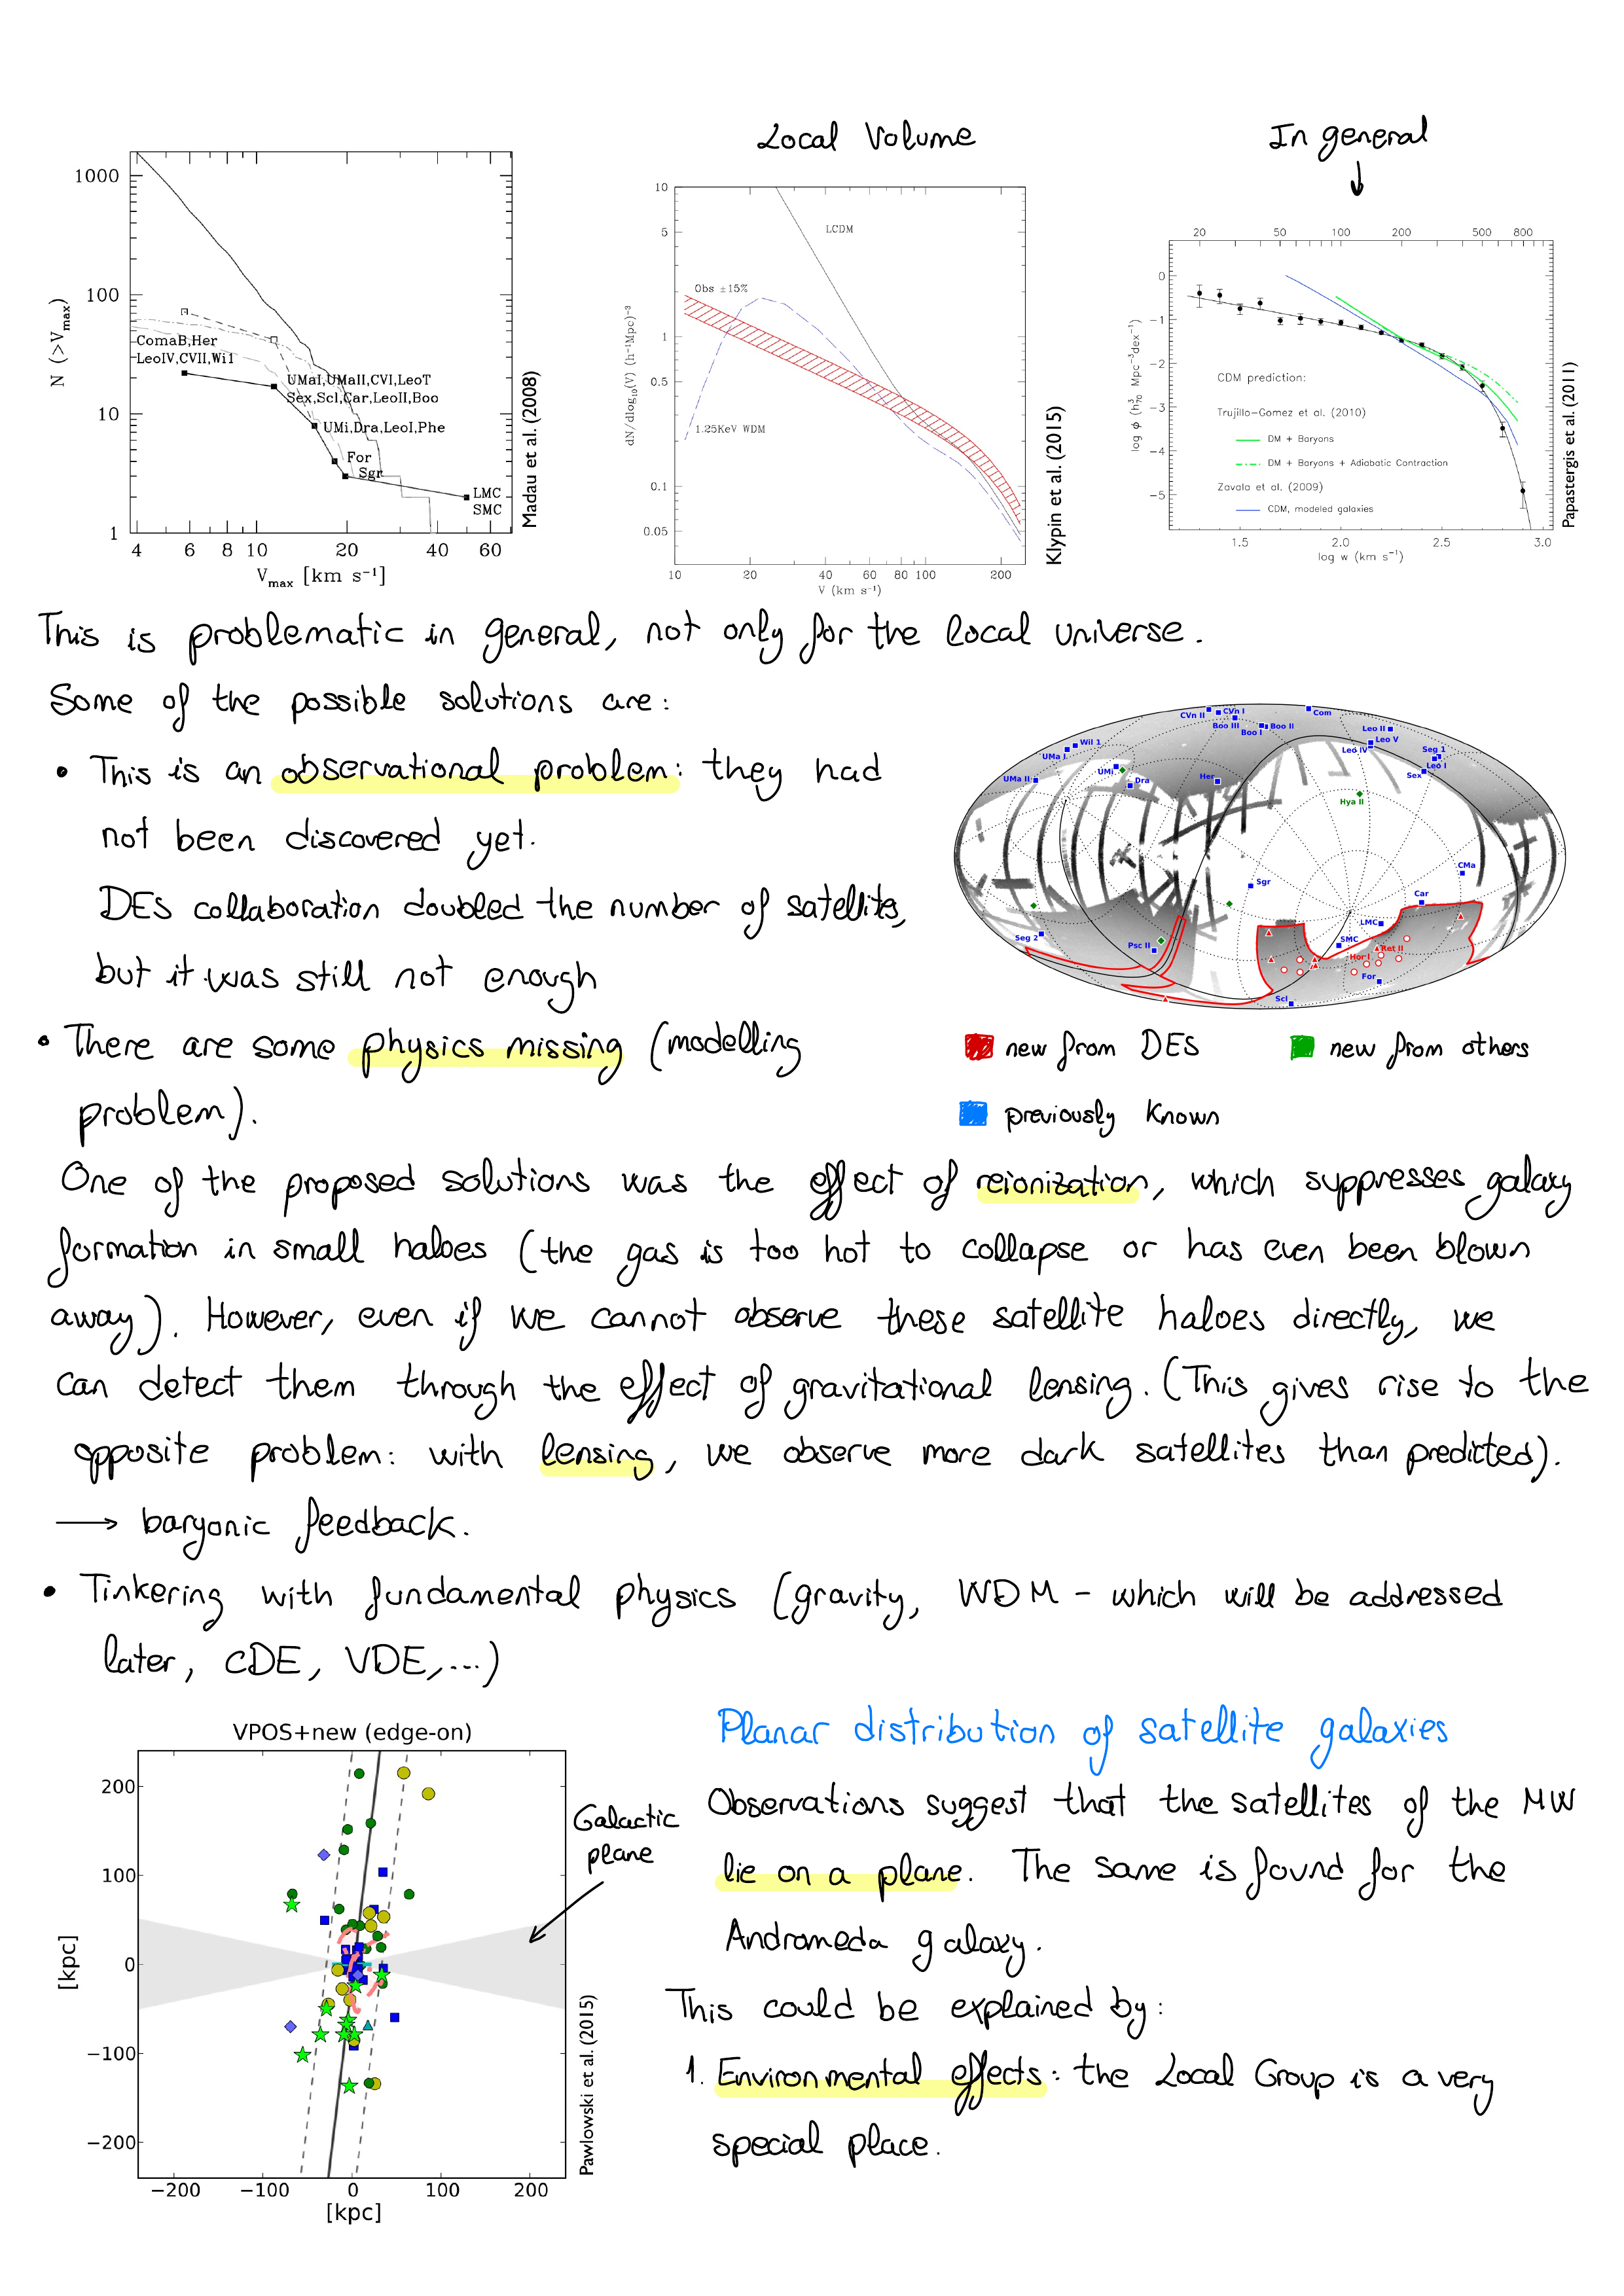 Local Volume
In general
1000
100
10
1
N (>Vmax)
ComaB,Her
LeoIV,CVII,Wil
UMaI,UMaII,CVI,LeoT
Sex,Scl,Car,LeoII,Boo
UMi,Dra,LeoI,Phe
For
Sgr
LMC
SMC
4 6 8 10 20 40 60
Vmax [km s⁻¹]
Madau et al. (2008)
10
5
1
0.5
0.1
0.05
dN/dlog₁₀(V) (h⁻¹Mpc)⁻³
LCDM
Obs ±15%
1.25KeV WDM
10 20 40 60 80 100 200
V (km s⁻¹)
Klypin et al. (2015)
20 50 100 200 500 800
0
−1
−2
−3
−4
−5
log φ (h³₇₀ Mpc⁻³dex⁻¹)
CDM prediction:
Trujillo-Gomez et al. (2010)
DM + Baryons
DM + Baryons + Adiabatic Contraction
Zavala et al. (2009)
CDM, modeled galaxies
1.5 2.0 2.5 3.0
log w (km s⁻¹)
Papastergis et al. (2011)
This is problematic in general, not only for the local universe.
Some of the possible solutions are:
• This is an observational problem: they had
not been discovered yet.
DES collaboration doubled the number of satellites,
but it was still not enough
• There are some physics missing (modelling
problem).
CVn II
CVn I
Com
Boo III
Boo II
Boo I
Leo II
Leo V
Leo IV
Seg 1
Leo I
Sex
Wil 1
UMa I
UMa II
UMi
Dra
Her
Hya II
CMa
Sgr
Car
LMC
SMC
Seg 2
Psc II
Ret II
Hor I
For
Scl
new from DES
new from others
previously known
One of the proposed solutions was the effect of reionization, which suppresses galaxy
formation in small haloes (the gas is too hot to collapse or has even been blown
away). However, even if we cannot observe these satellite haloes directly, we
can detect them through the effect of gravitational lensing. (This gives rise to the
opposite problem: with lensing, we observe more dark satellites than predicted).
→ baryonic feedback.
• Tinkering with fundamental physics (gravity, WDM - which will be addressed
later, CDE, VDE,...)
VPOS+new (edge-on)
200
100
0
−100
−200
[kpc]
−200 −100 0 100 200
[kpc]
Pawlowski et al. (2015)
Galactic
plane
Planar distribution of satellite galaxies
Observations suggest that the satellites of the MW
lie on a plane. The same is found for the
Andromeda galaxy.
This could be explained by:
1. Environmental effects: the Local Group is a very
special place.